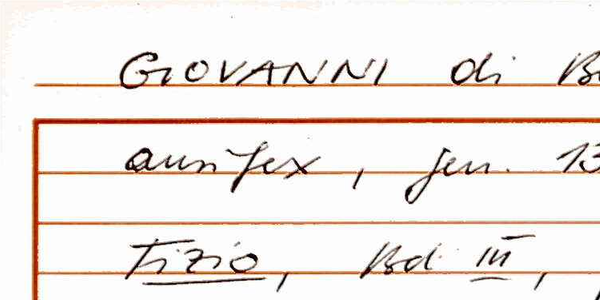 GIOVANNI di B
aurifex, gen. 13
Tizio, Bd III,